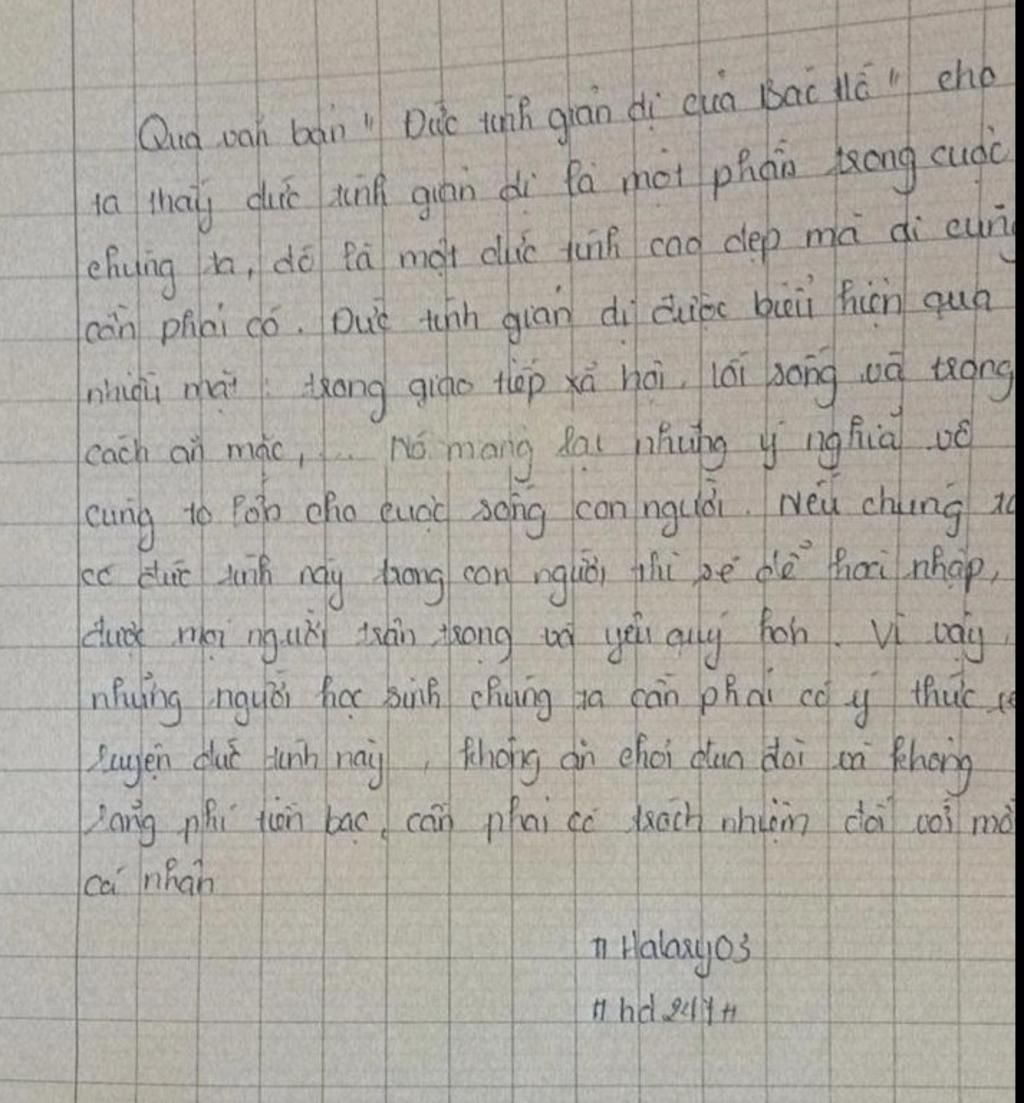 Qua văn bản " Đức tính giản dị của Bác Hồ " cho
ta thấy đức tính giản dị là một phần trong cuộc
chúng ta, đó là một đức tính cao đẹp mà ai cũng
cần phải có. Đức tính giản dị được biểu hiện qua
nhiều mặt : trong giao tiếp xã hội, lối sống và trong
cách ăn mặc, ... Nó mang lại những ý nghĩa vô
cùng to lớn cho cuộc sống con người. Nếu chúng ta
có đức tính này trong con người thì sẽ dễ hoà nhập,
được mọi người trân trọng và yêu quý hơn. Vì vậy,
những người học sinh chúng ta cần phải có ý thức
luyện đức tính này, không ăn chơi đua đòi và không
lãng phí tiền bạc, cần phải có trách nhiệm đối với
cá nhân